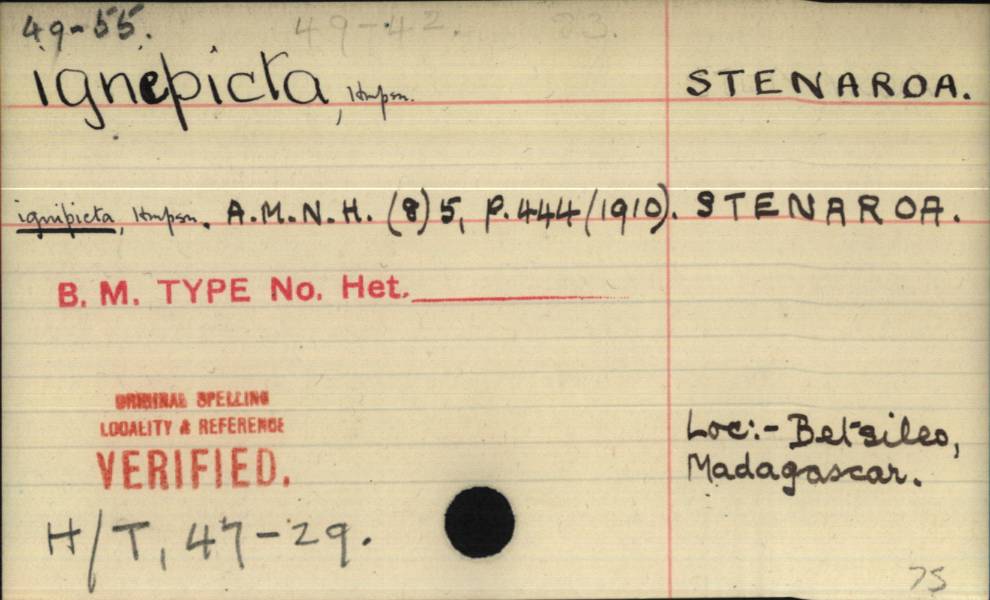 49-55. 49-42. 83.
ignepicta, Hmpsn. STENAROA.
ignipicta, Hmpsn. A.M.N.H. (8) 5, p.444 (1910). STENAROA.
B. M. TYPE No. Het.
ORIGINAL SPELLING
LOCALITY & REFERENCE
VERIFIED.
Loc:- Betsileo,
Madagascar.
H/T, 47-29.
75